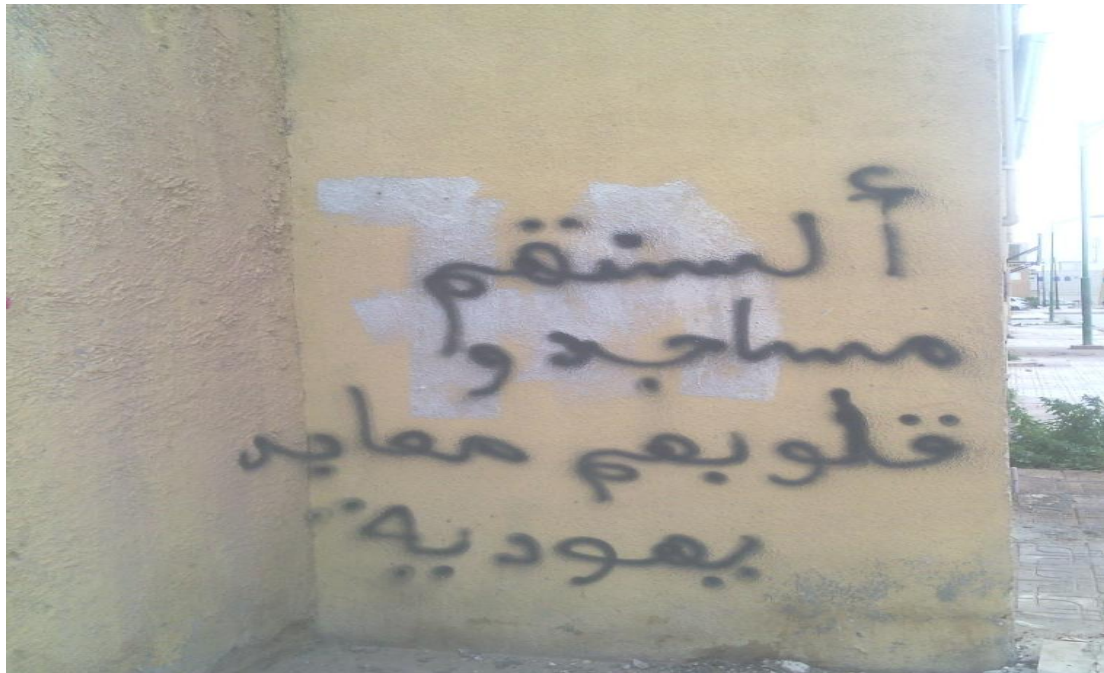 ألسنتهم
مساجد و
قلوبهم معابد
يهودية